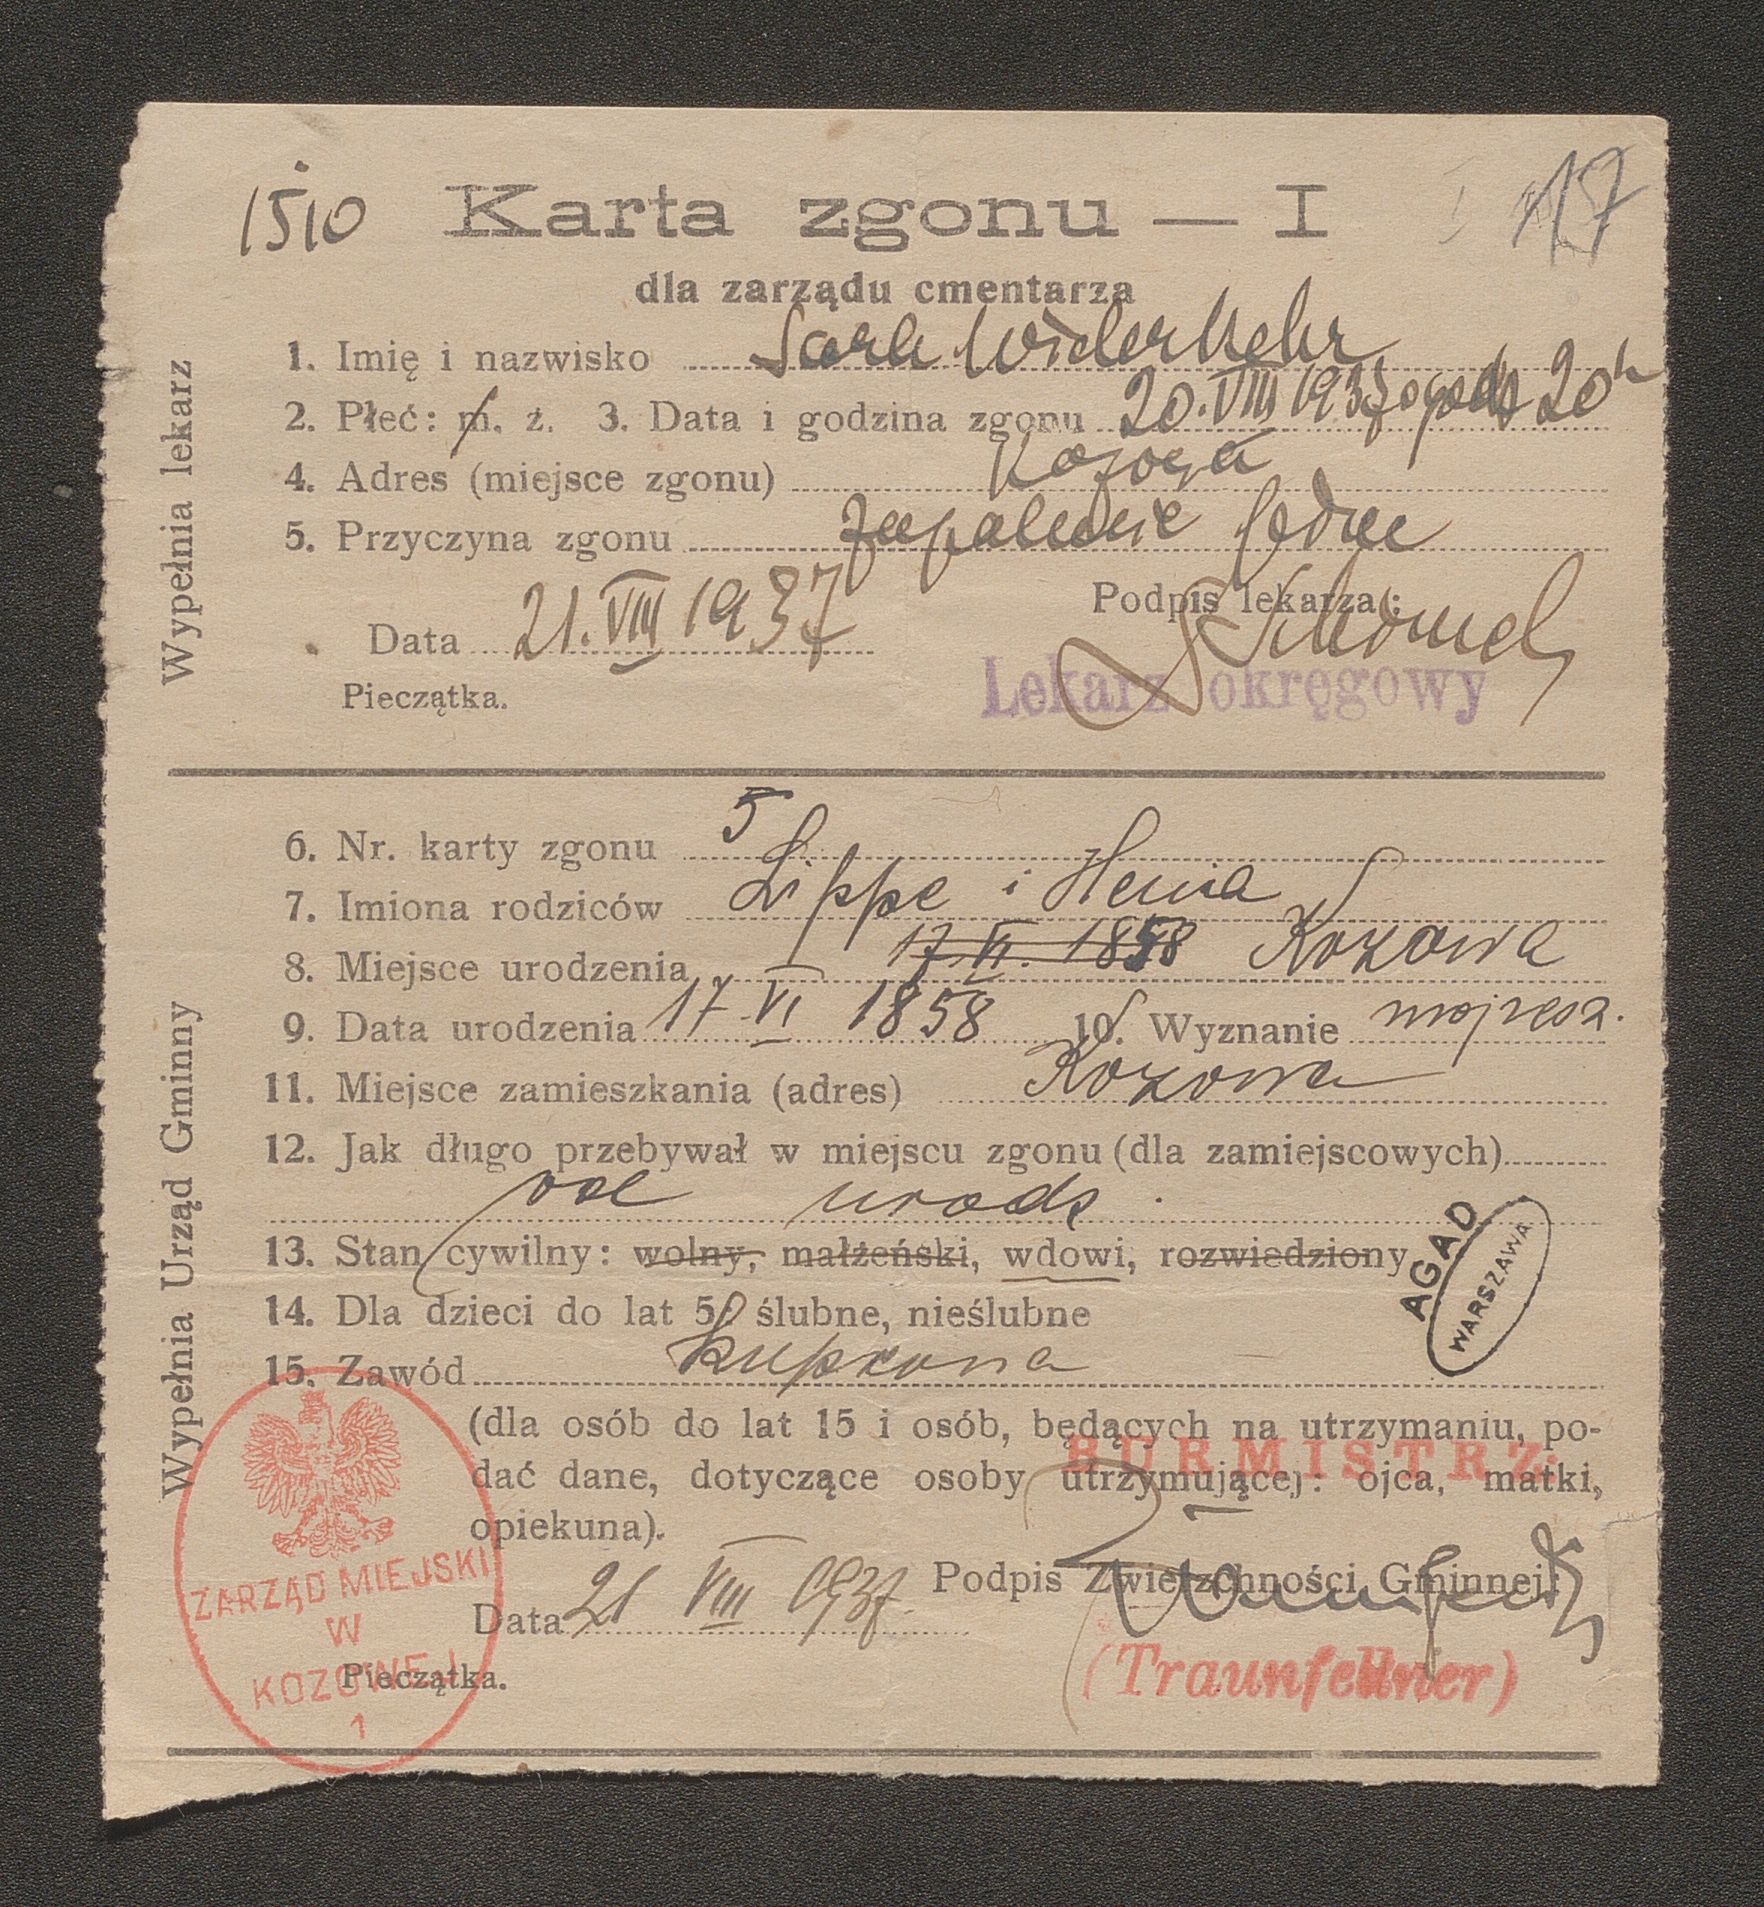 1510 Karta zgonu — I 17
dla zarządu cmentarza
Wypełnia lekarz
1. Imię i nazwisko Sara Widerkehr
2. Płeć: m. ż. 3. Data i godzina zgonu 20. VIII 1937 o godz 20h
4. Adres (miejsce zgonu) Kozowa
5. Przyczyna zgonu zapalenie
Podpis lekarza:
Data 21. VIII 1937
Lekarz okręgowy
Pieczątka.
Wypełnia Urząd Gminny
6. Nr. karty zgonu 5
7. Imiona rodziców Lippe i Henia
8. Miejsce urodzenia 17. VI. 1858 Kozowa
9. Data urodzenia 17 VI 1858 10. Wyznanie mojżesz.
11. Miejsce zamieszkania (adres) Kozowa
12. Jak długo przebywał w miejscu zgonu (dla zamiejscowych)
od urodz.
13. Stan cywilny: wolny, małżeński, wdowi, rozwiedziony
14. Dla dzieci do lat 5: ślubne, nieślubne
15. Zawód kupcowa
AGAD
WARSZAWA
(dla osób do lat 15 i osób, będących na utrzymaniu, po-
dać dane, dotyczące osoby utrzymującej: ojca, matki,
opiekuna).
BURMISTRZ
Podpis Zwierzchności Gminnej:
Data 21 VIII 1937
(Traunfellner)
Pieczątka.
ZARZĄD MIEJSKI
W
KOZOWEJ
1